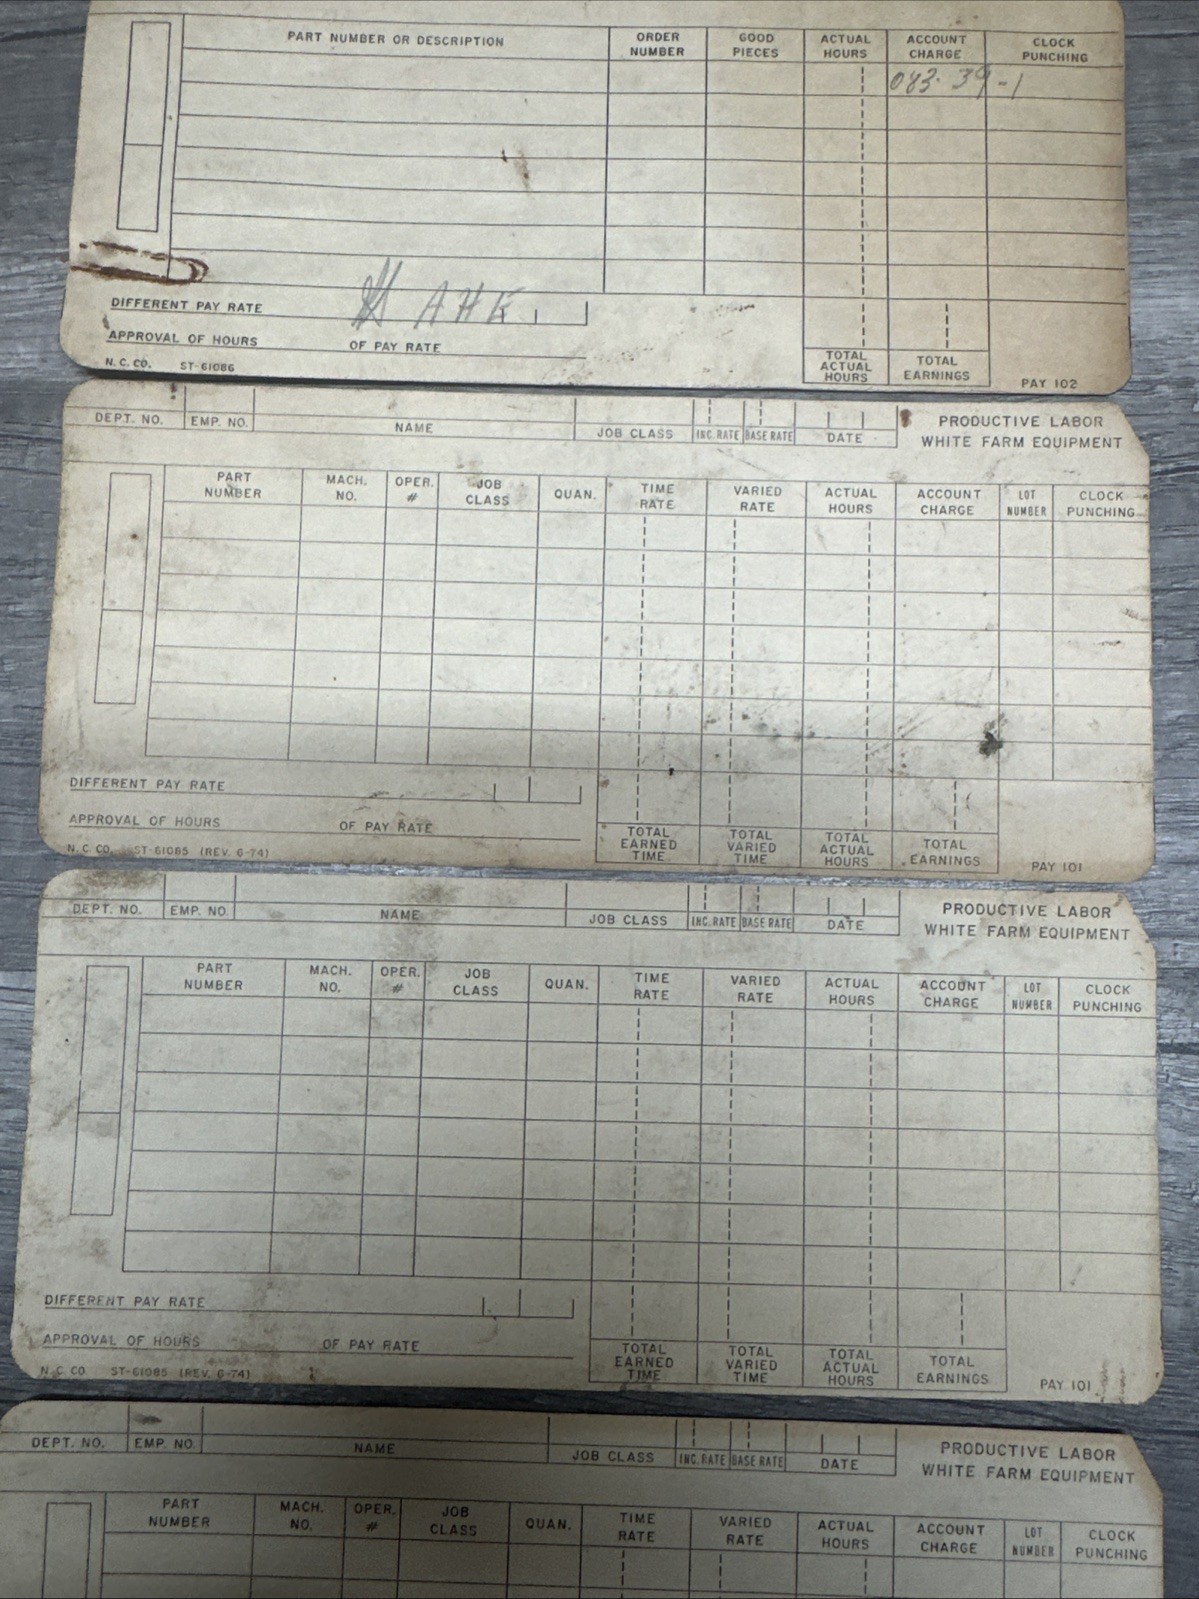 PART NUMBER OR DESCRIPTION ORDER NUMBER GOOD PIECES ACTUAL HOURS ACCOUNT CHARGE CLOCK PUNCHING
083-39-1
DIFFERENT PAY RATE
APPROVAL OF HOURS OF PAY RATE
TOTAL ACTUAL HOURS TOTAL EARNINGS
N. C. CO. ST-61086 PAY 102
DEPT. NO. EMP. NO. NAME JOB CLASS INC. RATE BASE RATE DATE
PRODUCTIVE LABOR
WHITE FARM EQUIPMENT
PART NUMBER MACH. NO. OPER. # JOB CLASS QUAN. TIME RATE VARIED RATE ACTUAL HOURS ACCOUNT CHARGE LOT NUMBER CLOCK PUNCHING
DIFFERENT PAY RATE
APPROVAL OF HOURS OF PAY RATE
TOTAL EARNED TIME TOTAL VARIED TIME TOTAL ACTUAL HOURS TOTAL EARNINGS
N. C. CO. ST-61085 (REV. 6-74) PAY 101
DEPT. NO. EMP. NO. NAME JOB CLASS INC. RATE BASE RATE DATE
PRODUCTIVE LABOR
WHITE FARM EQUIPMENT
PART NUMBER MACH. NO. OPER. # JOB CLASS QUAN. TIME RATE VARIED RATE ACTUAL HOURS ACCOUNT CHARGE LOT NUMBER CLOCK PUNCHING
DIFFERENT PAY RATE
APPROVAL OF HOURS OF PAY RATE
TOTAL EARNED TIME TOTAL VARIED TIME TOTAL ACTUAL HOURS TOTAL EARNINGS
N. C. CO. ST-61085 (REV. 6-74) PAY 101
DEPT. NO. EMP. NO. NAME JOB CLASS INC. RATE BASE RATE DATE
PRODUCTIVE LABOR
WHITE FARM EQUIPMENT
PART NUMBER MACH. NO. OPER. # JOB CLASS QUAN. TIME RATE VARIED RATE ACTUAL HOURS ACCOUNT CHARGE LOT NUMBER CLOCK PUNCHING